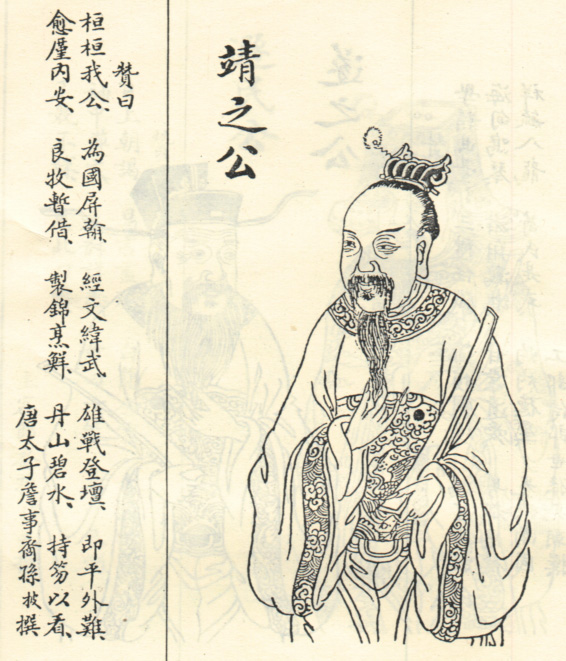 靖之公
贊曰
桓桓我公、為國屏翰、經文緯武、雄戰登壇、即平外難、
愈廑内安、良牧暫借、製錦烹鮮、丹山碧水、持笏以看、
唐太子詹事裔孫撰